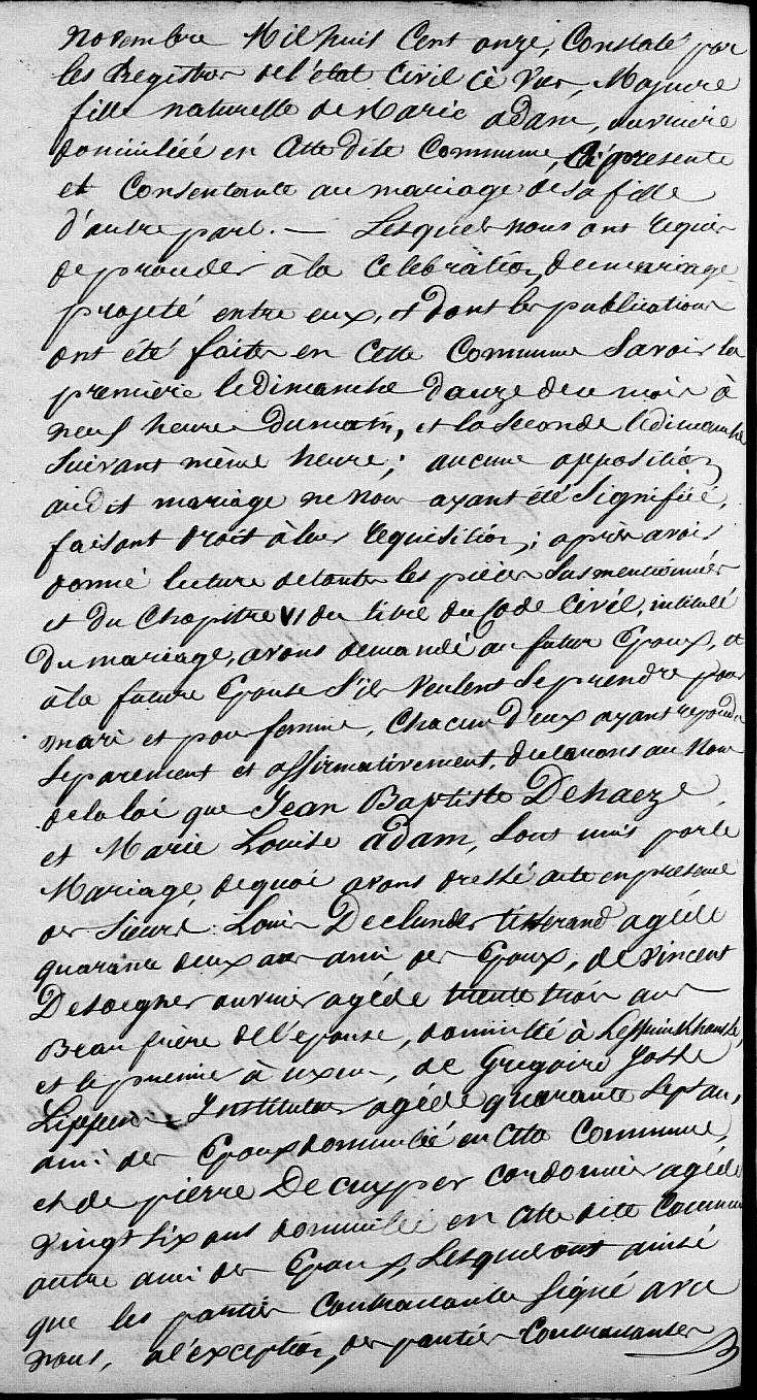 novembre Mil huit Cent onze, Constaté par
les Registres de l'état Civil cè vu, Majeure
fille naturelle de Marie adam, ouvrière
domiciliée en Cette dite Commune, Cÿ présente
et Consentante au mariage de sa fille
d'autre part. — Lesquels nous ont requis
de proceder à la Celebration du mariage
projeté entre eux, et dont les publications
ont été faites en Cette Commune Savoir la
première le dimanche douze deu mois à
neuf heures du matin, et la Seconde le dimanche
Suivant même heure; aucune opposition
audit mariage ne nous ayant été Signifiée,
faisant droit à leur requisition; après avoir
donné lecture de toutes les pièces Susmentionnées
et du Chapitre VI du titre du Code Civil, intitulé
Du mariage, avons demandé au futur Epoux, et
à la future Epouse S'ils veulent Se prendre pour
mari et pour femme, Chacun d'eux ayant repondu
Séparement et affirmativement, declarons au Nom
de la loi que Jean Baptiste Dehaeze
et Marie Louise adam, Sont unis par le
Mariage, de quoi avons dressé acte en presence
des Sieurs Louis Declunder tisserand agé de
quarante deux ans ami des Epoux, de Vincent
Desaegher ouvrier agé de trente trois ans
Beau frère de l'epouse, domicilié à
et le premier à, de Gregoire Josse
Lippens Instituteur agé de quarante Sept ans,
ami des Epoux domicilié en Cette Commune,
et de pierre Decuyper Cordonnier agé de
vingt Six ans domicilié en Cette dite Commune
autre ami des Epoux, Lesquels ont ainsi
que les parties Contractantes Signé avec
nous, à l'exception, des parties Contractantes